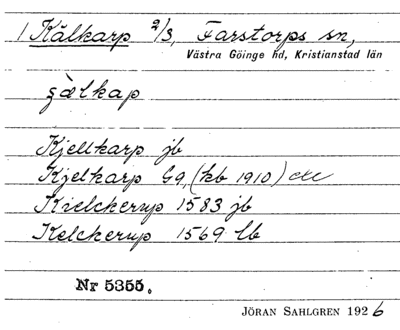 1 Kälkarp 2/3, Farstorps sn,
Västra Göinge hd, Kristianstad län
Kjellkarp jb
Kjelkarp (kb 1910)
Kielckerup 1583 jb
Kelckerup 1569 lb
Nr 5355.
JÖRAN SAHLGREN 1926